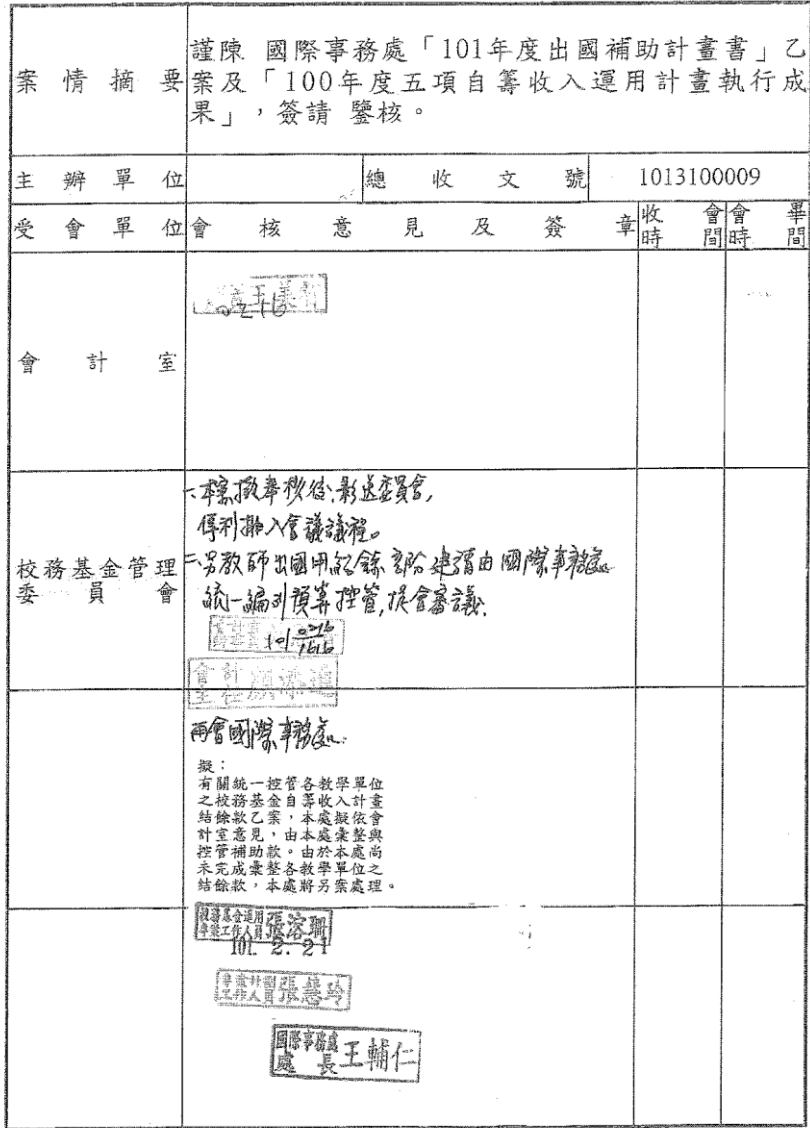 案情摘要
謹陳 國際事務處「101年度出國補助計畫書」乙
案及「100年度五項自籌收入運用計畫執行成
果」，簽請 鑒核。
主辦單位
總收文號
1013100009
受會單位
會核意見及簽章
收會時間
會畢時間
會計室
校務基金管理
委員會
一、本案擬奉核後,影送委員會,
俾利排入會議議程。
二、另教師出國用結餘部份建請由國際事務處
統一編列預算控管,提會審議.
101 0216
1616
再會國際事務處.
擬：
有關統一控管各教學單位
之校務基金自籌收入計畫
結餘款乙案，本處擬依會
計室意見，由本處彙整與
控管補助款。由於本處尚
未完成彙整各教學單位之
結餘款，本處將另案處理。
校務基金運用
專案工作人員 張溶珊
101. 2. 21
國際事務處
處長 王輔仁